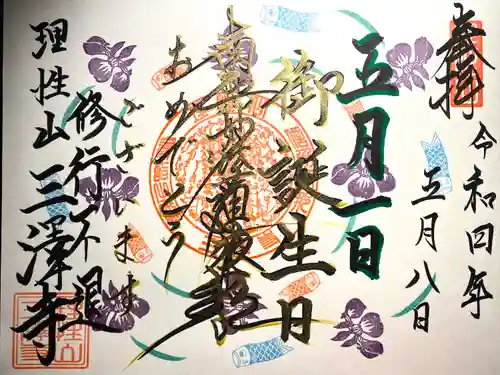 奉拝
令和四年
五月八日
五月一日
御誕生日
おめでとう
ございます
修行不退
理性山 三澤寺